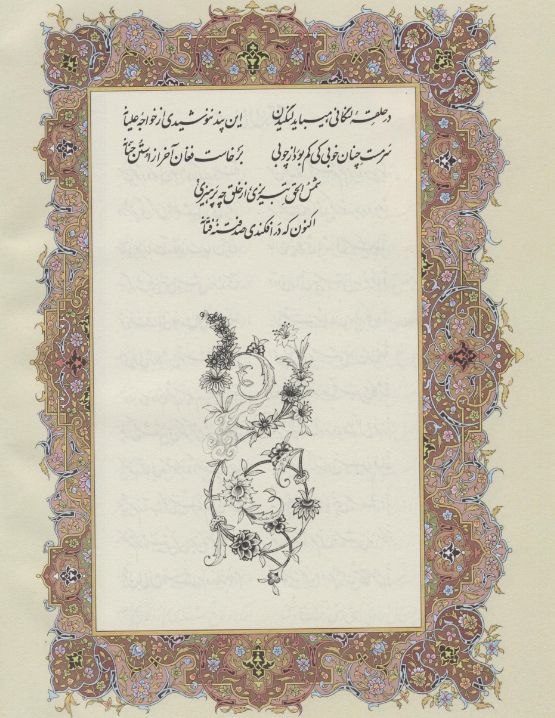 در حلقهٔ لنگانی میباید لنگیدن این پند ننوشیدی از خواجهٔ علیانه
سرمست چنان خوبی کی کم بود از چوبی برخاست فغان آخر از استن حنانه
شمس الحق تبریزی از خلق چه پرهیزی
اکنون که درافکندی صد فتنهٔ فتانه